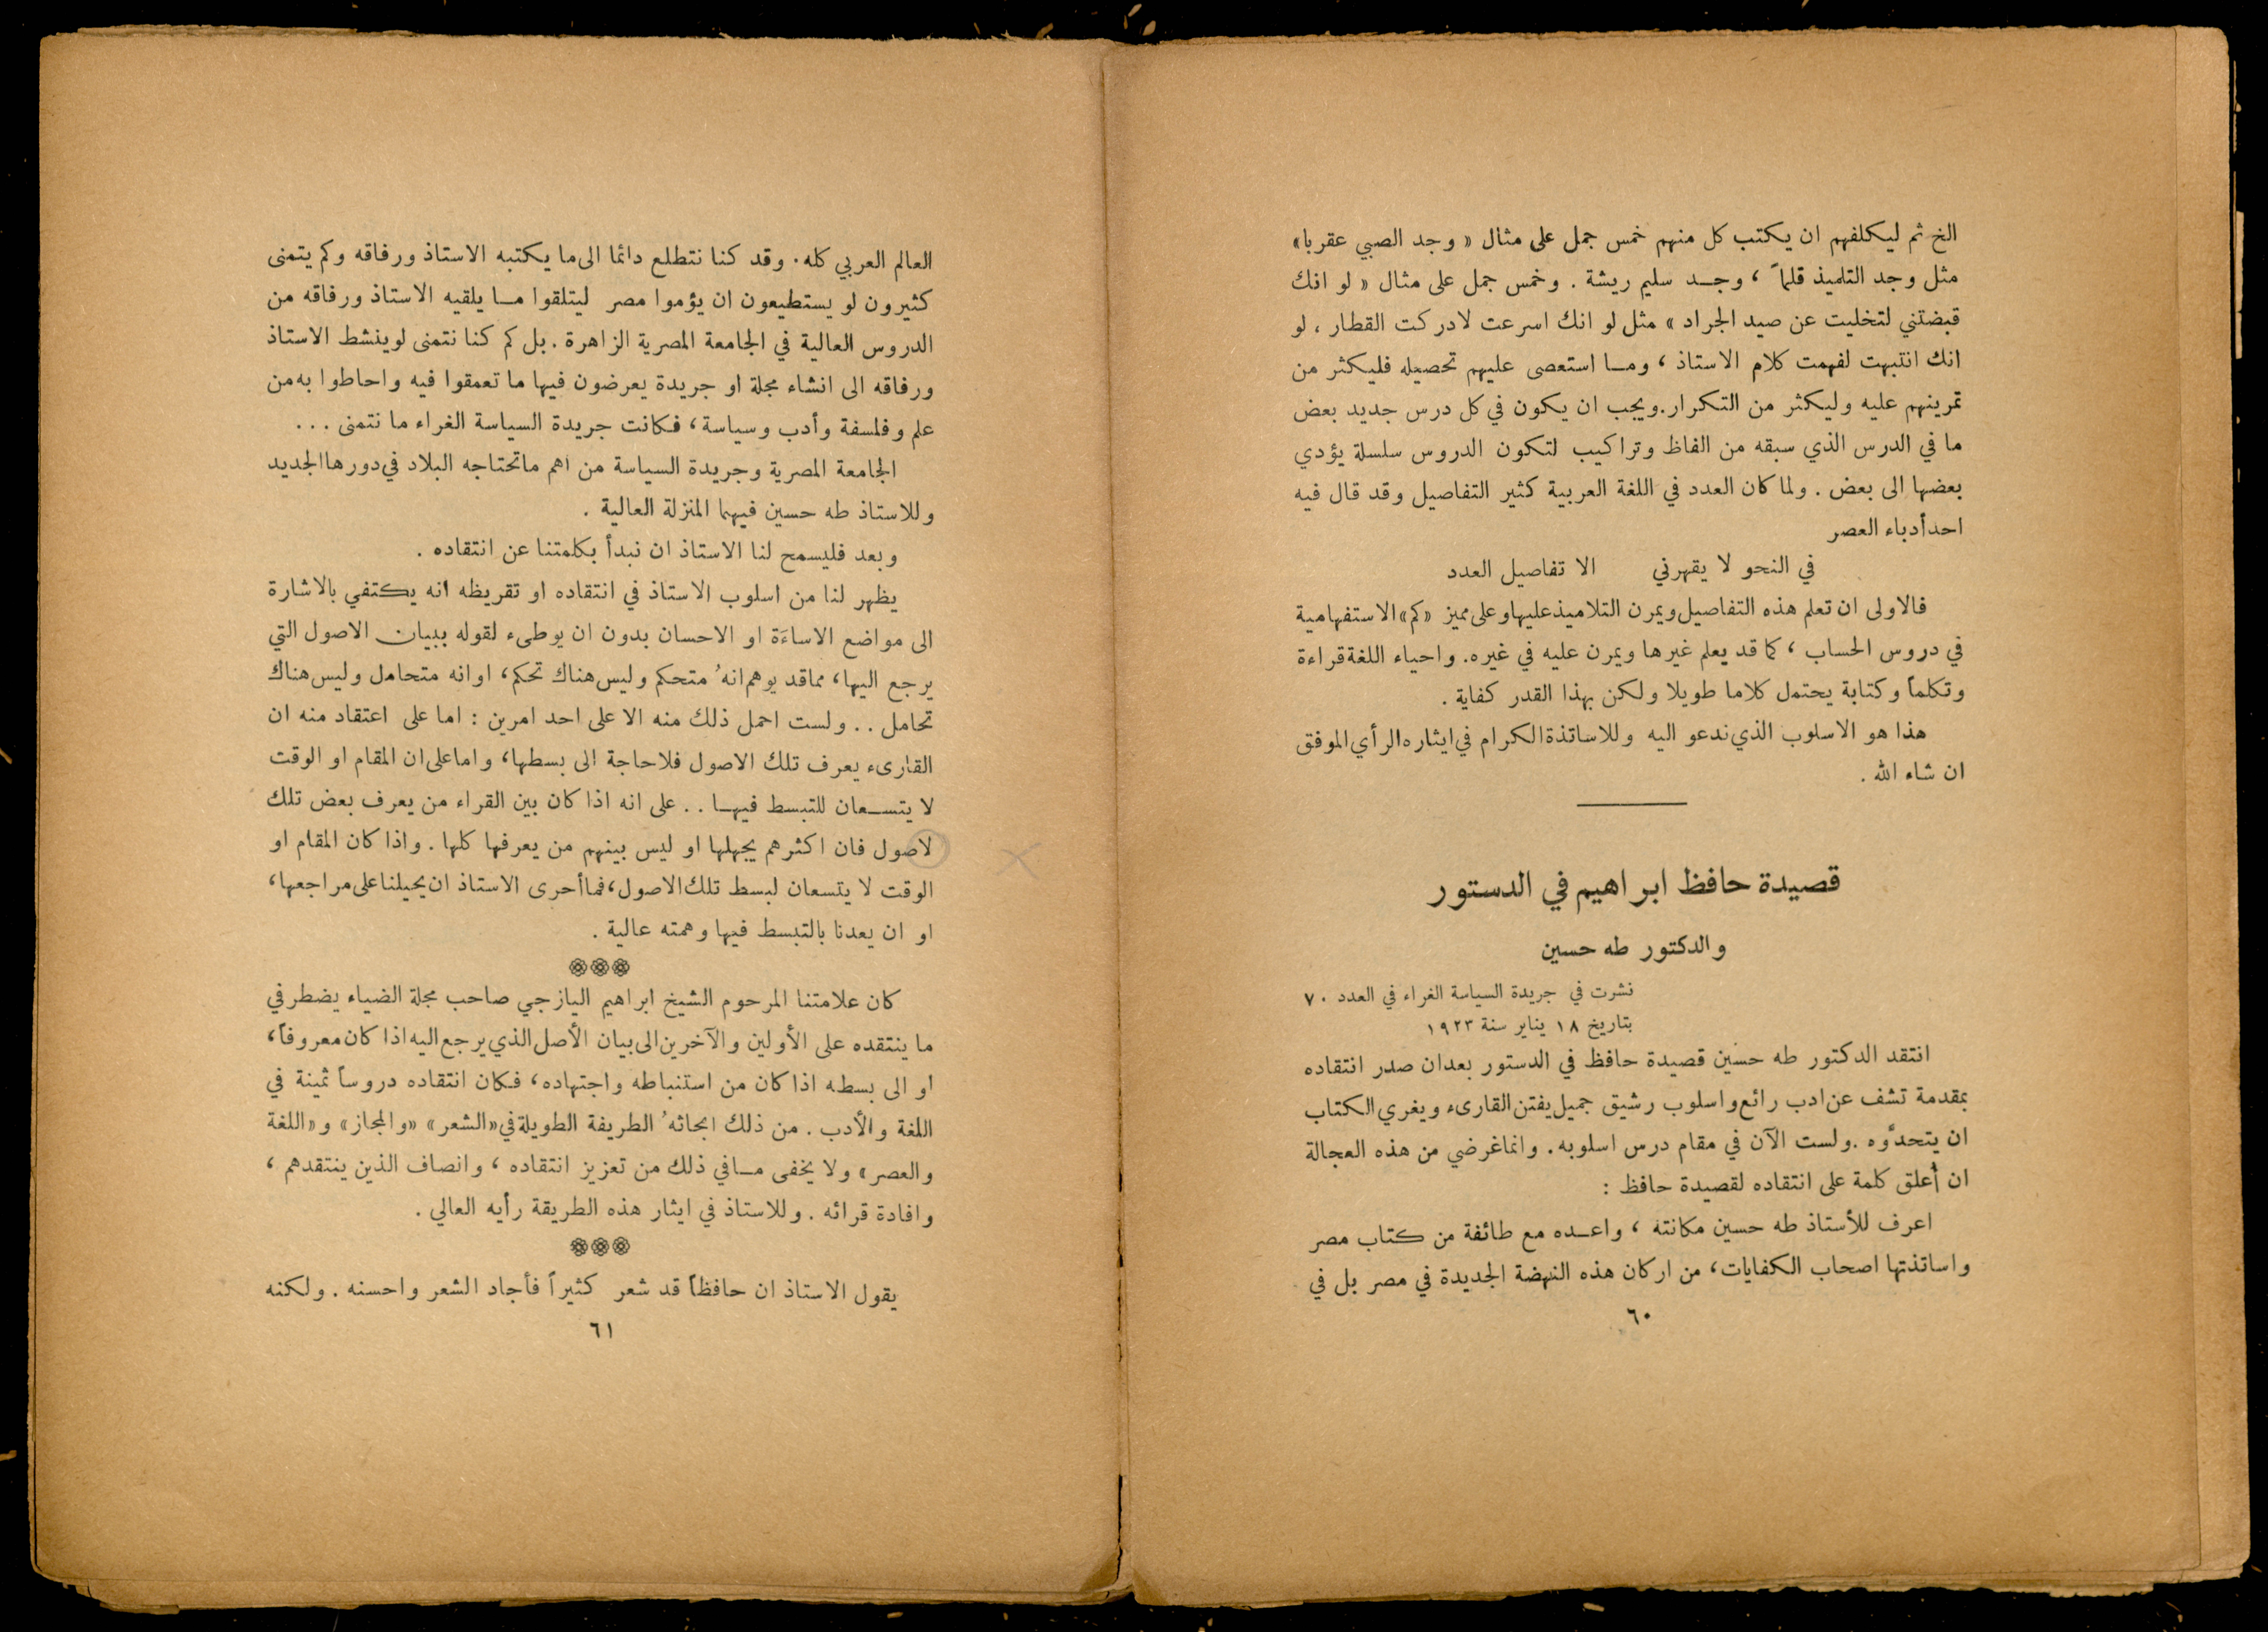 الخ ثم ليكلفهم ان يكتب كل منهم خمس جمل على مثال « وجد الصبي عقربا»
مثل وجد التلميذ قلماً ، وجد سليم ريشة . وخمس جمل على مثال « لو انك
قبضتني لتخليت عن صيد الجراد » مثل لو انك اسرعت لادركت القطار ، لو
انك انتبهت لفهمت كلام الاستاذ ، وما استعصى عليهم تحصيله فليكثر من
تمرينهم عليه وليكثر من التكرار.ويجب ان يكون في كل درس جديد بعض
ما في الدرس الذي سبقه من الفاظ وتراكيب لتكون الدروس سلسلة يؤدي
بعضها الى بعض . ولما كان العدد في اللغة العربية كثير التفاصيل وقد قال فيه
احد أدباء العصر
في النحو لا يقهرني الا تفاصيل العدد
فالاولى ان تعلم هذه التفاصيل ويمرن التلاميذ عليها وعلى مميز «كم» الاستفهامية
في دروس الحساب ، كما قد يعلم غيرها ويمرن عليه في غيره. واحياء اللغة قراءة
وتكلماً وكتابة يحتمل كلاما طويلا ولكن بهذا القدر كفاية .
هذا هو الاسلوب الذي ندعو اليه وللاساتذة الكرام في ايثاره الرأي الموفق
ان شاء الله .
قصيدة حافظ ابراهيم في الدستور
والدكتور طه حسين
نشرت في جريدة السياسة الغراء في العدد ٧٠
بتاريخ ١٨ يناير سنة ١٩٢٣
انتقد الدكتور طه حسين قصيدة حافظ في الدستور بعد ان صدر انتقاده
بمقدمة تشف عن ادب رائع واسلوب رشيق جميل يفتن القارىء ويغري الكتاب
ان يتحدَّوه .ولست الآن في مقام درس اسلوبه. وانما غرضي من هذه العجالة
ان أعلق كلمة على انتقاده لقصيدة حافظ :
اعرف للأستاذ طه حسين مكانته ، واعده مع طائفة من كتاب مصر
واساتذتها اصحاب الكفايات، من اركان هذه النهضة الجديدة في مصر بل في
٦٠
العالم العربي كله . وقد كنا نتطلع دائما الى ما يكتبه الاستاذ ورفاقه وكم يتمنى
كثيرون لو يستطيعون ان يؤموا مصر ليتلقوا ما يلقيه الاستاذ ورفاقه من
الدروس العالية في الجامعة المصرية الزاهرة . بل كم كنا نتمنى لو ينشط الاستاذ
ورفاقه الى انشاء مجلة او جريدة يعرضون فيها ما تعمقوا فيه واحاطوا به من
علم وفلسفة وأدب وسياسة، فكانت جريدة السياسة الغراء ما نتمنى ...
الجامعة المصرية وجريدة السياسة من اهم ما تحتاجه البلاد في دورها الجديد
وللاستاذ طه حسين فيهما المنزلة العالية .
وبعد فليسمح لنا الاستاذ ان نبدأ بكلمتنا عن انتقاده .
يظهر لنا من اسلوب الاستاذ في انتقاده او تقريظه انه يكتفي بالاشارة
الى مواضع الاساءَة او الاحسان بدون ان يوطىء لقوله ببيان الاصول التي
يرجع اليها، مما قد يوهم انهُ متحكم وليس هناك تحكم، او انه متحامل وليس هناك
تحامل .. ولست احمل ذلك منه الا على احد امرين : اما على اعتقاد منه ان
القارىء يعرف تلك الاصول فلا حاجة الى بسطها، واما على ان المقام او الوقت
لا يتسعان للتبسط فيها .. على انه اذا كان بين القراء من يعرف بعض تلك
لاصول فان اكثرهم يجهلها او ليس بينهم من يعرفها كلها . واذا كان المقام او
الوقت لا يتسعان لبسط تلك الاصول، فما أحرى الاستاذ ان يحيلنا على مراجعها،
او ان يعدنا بالتبسط فيها وهمته عالية .
كان علامتنا المرحوم الشيخ ابراهيم اليازجي صاحب مجلة الضياء يضطر في
ما ينتقده على الأولين والآخرين الى بيان الأصل الذي يرجع اليه اذا كان معروفاً،
او الى بسطه اذا كان من استنباطه واجتهاده، فكان انتقاده دروساً ثمينة في
اللغة والأدب . من ذلك ابحاثهُ الطريفة الطويلة في «الشعر» «والمجاز» و«اللغة
والعصر» ولا يخفى ما في ذلك من تعزيز انتقاده ، وانصاف الذين ينتقدهم ،
وافادة قرائه . وللاستاذ في ايثار هذه الطريقة رأيه العالي .
يقول الاستاذ ان حافظاً قد شعر كثيراً فأجاد الشعر واحسنه . ولكنه
٦١